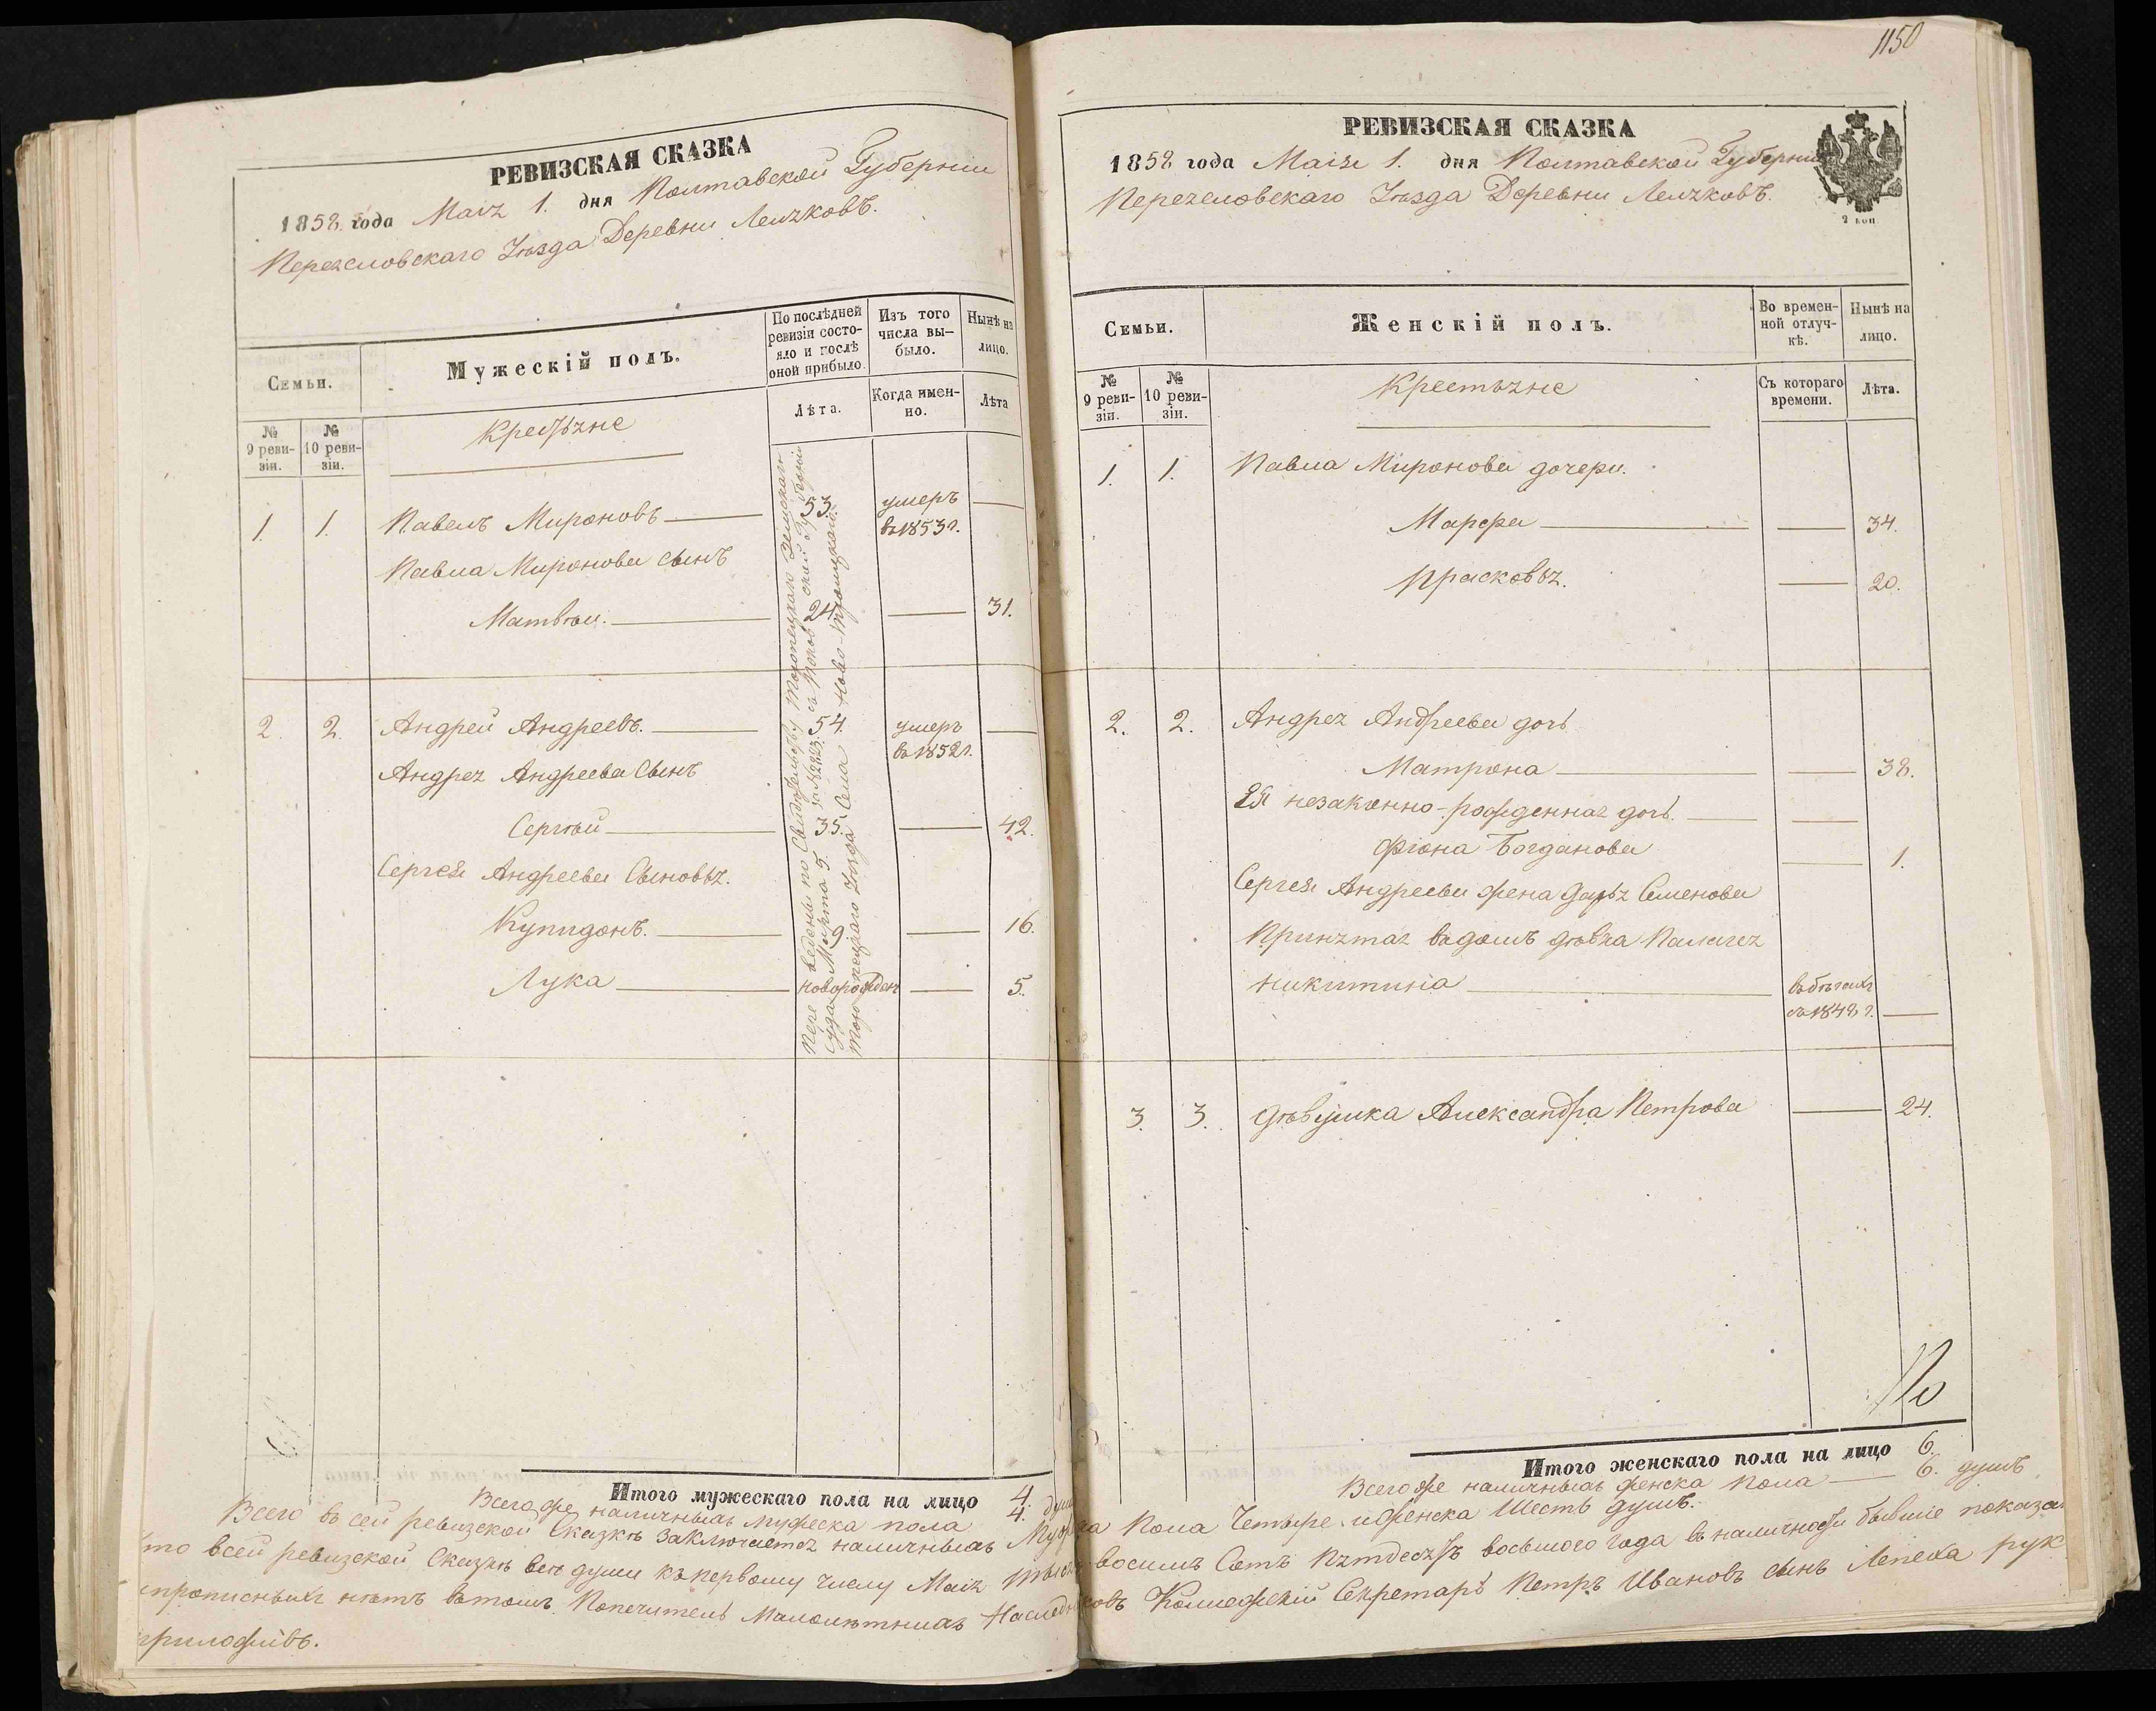 РЕВИЗСКАЯ СКАЗКА
1858 года Маія 1. дня Полтавской Губерніи
Переяславскаго Уѣзда Деревни Леляковъ.
Семьи.
Мужескій полъ.
По послѣдней ревизіи состояло и послѣ оной прибыло.
Изъ того числа вы-было.
Нынѣ на лицо.
№ 9 реви-зіи.
№ 10 реви-зіи.
Крестьяне
Лѣта.
Когда имен-но.
Лѣта
1. 1. Павелъ Мироновъ 53. умеръ
въ 1853 г.
Павла Миронова сынъ
Матвѣй. 24 31.
2. 2. Андрей Андреевъ. 54. умеръ
въ 1852 г.
Андрея Андреева Сынъ
Сергѣй 35. 42.
Сергея Андреева Сыновья.
Купидонъ. 9 16.
Лука новорожден 5.
Переведены по Свидѣтельству Земскаго
Суда Марта 5. за № 2823. съ Губерніи
уѣзда Села Ново-Троицкаго
Итого мужескаго пола на лицо 4.
Всего же наличныхъ мужеска пола 4. душ
1150
РЕВИЗСКАЯ СКАЗКА
1858 года Маія 1. дня Полтавской Губерніи
Переяславскаго Уѣзда Деревни Леляковъ.
2 коп
Семьи.
Женскій полъ.
Во времен-ной отлуч-кѣ.
Нынѣ на лицо.
№ 9 реви-зіи.
№ 10 реви-зіи.
Крестьяне
Съ котораго времени.
Лѣта.
1. 1. Павла Миронова дочери.
Марфа 34.
Прасковья. 20.
2. 2. Андрея Андреева дочь
Матрона 38.
Ея незаконно-рожденная дочь.
Фіона Богданова 1.
Сергея Андреева жена Дарья Семенова
Принятая въ домъ дѣвка Палагея
Никитина въ бѣгахъ
съ 1848 г.
3. 3. Дѣвушка Александра Петрова 24.
Итого женскаго пола на лицо 6.
Всего же наличныхъ женска пола 6. душъ
Всего въ сей ревизской Сказкѣ заключается наличныхъ Мужеска Пола Четыре и женска Шесть душъ.
что всей ревизской Сказкѣ всѣ души къ первому числу Маія тысяча восемь Сотъ пятдесятъ восьмого года въ наличности бывшіе показа
прописныхъ нѣтъ въ томъ Попечитель Малолѣтныхъ Наследниковъ Коллежскій Секретарь Петръ Ивановъ сынъ Лепеха рук
приложивъ.